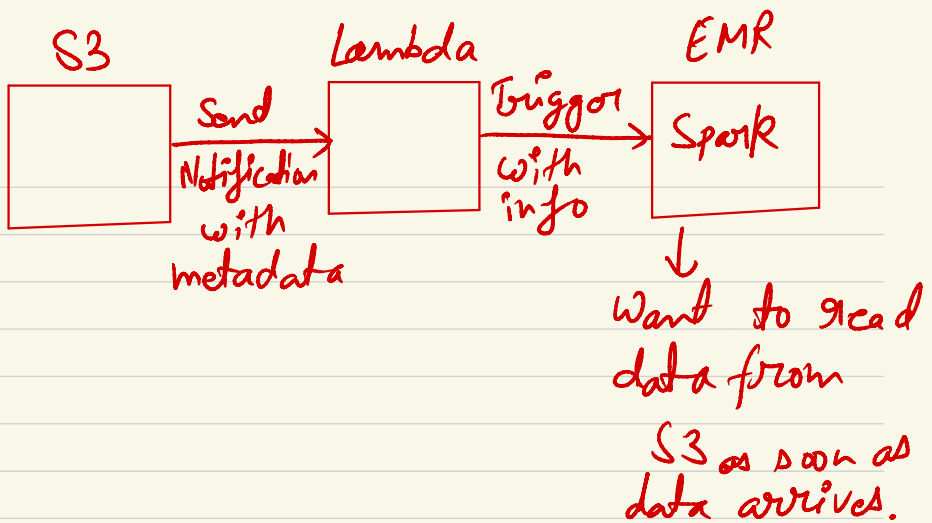 S3
Lambda
EMR
Send
Notification
with
metadata
Trigger
with
info
Spark
Want to read
data from
S3 as soon as
data arrives.